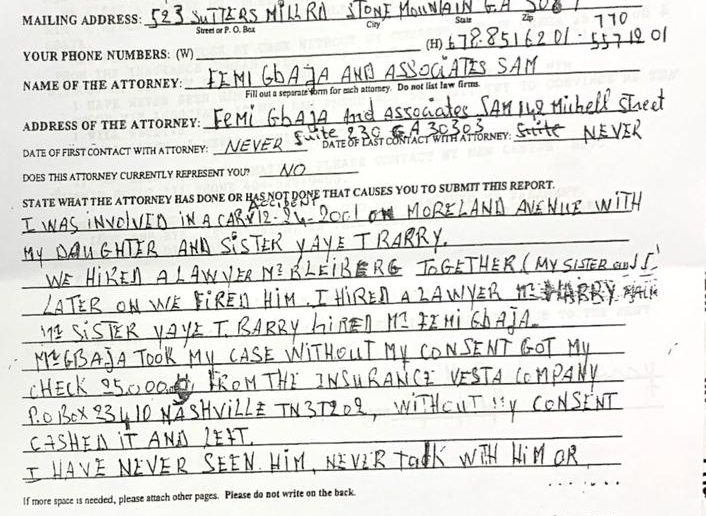 MAILING ADDRESS: 523 SUTTERS MILL RD STONE MOUNTAIN GA
Street or P. O. Box City State Zip
770
YOUR PHONE NUMBERS: (W) (H) 678-8516201 - 5571201
NAME OF THE ATTORNEY: FEMI GBAJA AND ASSOCIATES SAM
Fill out a separate form for each attorney. Do not list law firms.
ADDRESS OF THE ATTORNEY: FEMI GBAJA And Associates SAM 142 Michell Street
Suite 230 GA 30303 Suite
DATE OF FIRST CONTACT WITH ATTORNEY: NEVER DATE OF LAST CONTACT WITH ATTORNEY: NEVER
DOES THIS ATTORNEY CURRENTLY REPRESENT YOU? NO
STATE WHAT THE ATTORNEY HAS DONE OR HAS NOT DONE THAT CAUSES YOU TO SUBMIT THIS REPORT.
ACCIDENT
I WAS INVOLVED IN A CAR 12-24-2001 ON MORELAND AVENUE WITH
MY DAUGHTER AND SISTER YAYE T BARRY.
WE HIRED A LAWYER MR BLEIBERG TOGETHER (MY SISTER and I)
LATER ON WE FIRED HIM. I HIRED A LAWYER MR HARRY
MY SISTER YAYE T. BARRY HIRED MR FEMI GBAJA.
MR GBAJA TOOK MY CASE WITHOUT MY CONSENT GOT MY
CHECK 25,000.00 FROM THE INSURANCE VESTA COMPANY
P.O BOX 23410 NASHVILLE TN 37202, WITHOUT MY CONSENT
CASHED IT AND LEFT.
I HAVE NEVER SEEN HIM, NEVER TALK WITH HIM OR
If more space is needed, please attach other pages. Please do not write on the back.